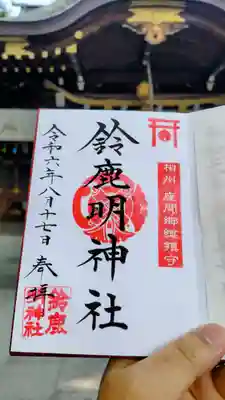 相州 座間郷総鎮守
鈴鹿明神社
令和六年八月十七日 奉拝
鈴鹿明神社